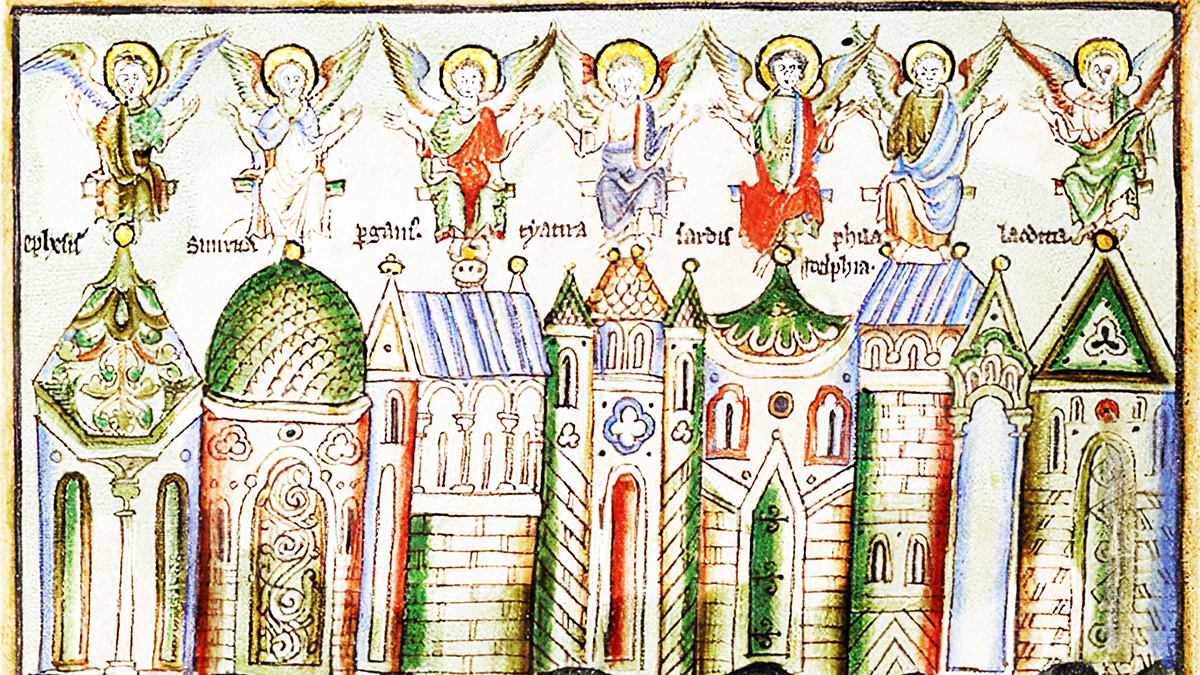 ephesis
smirna
pgam̄.
tyatira
sardis
phila
delphia.
laodicia